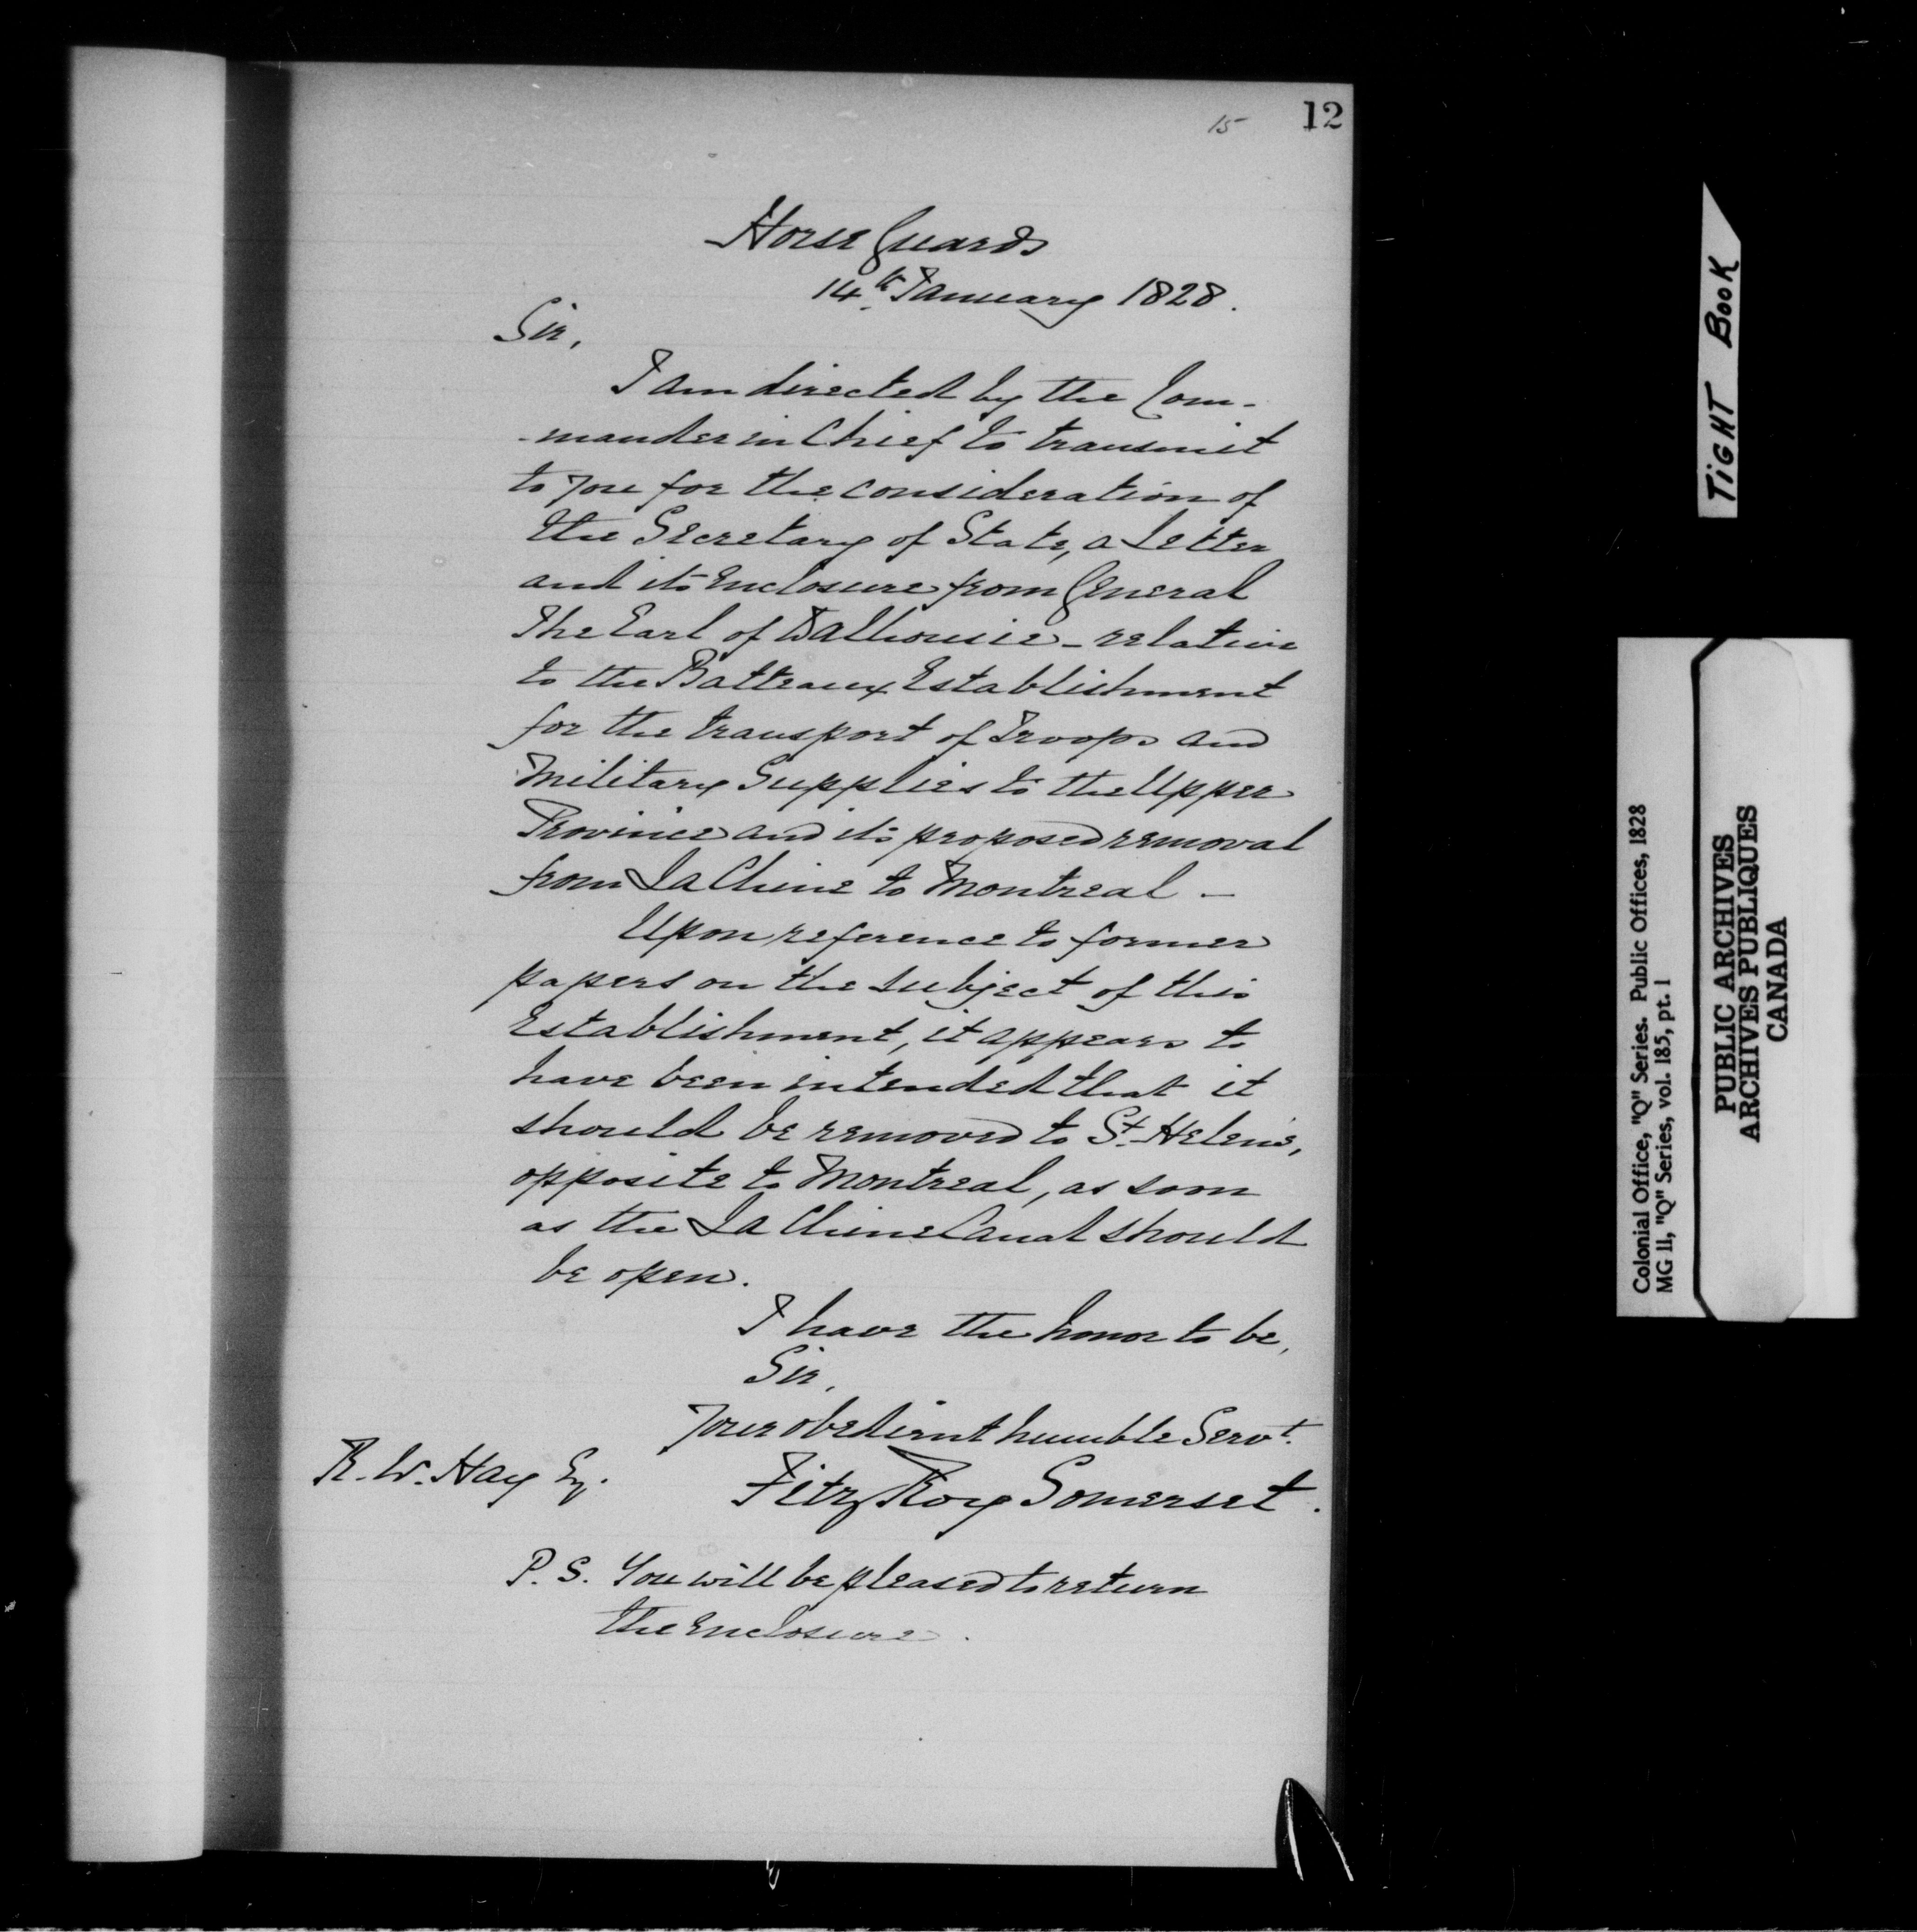 15 12
Horse Guards
14th January 1828.
Sir,
I am directed by the Com-
-mander in Chief to transmit
to you for the consideration of
the Secretary of State, a Letter
and its Enclosure from General
The Earl of Dalhousie - relative
to the Batteaux Establishment
for the transport of Troops and
Military Supplies to the Upper
Province and its proposed removal
from La Chine to Montreal -
Upon reference to former
papers on the subject of this
Establishment, it appears to
have been intended that it
should be removed to St. Helens,
opposite to Montreal, as soon
as the La Chine Canal should
be open.
I have the honor to be,
Sir,
Your obedient humble Servt.
R. W. Hay Esq.
FitzRoy Somerset.
P.S. You will be pleased to return
the Enclosure.
TIGHT BOOK
Colonial Office, "Q" Series. Public Offices, 1828
MG 11, "Q" Series, vol. 185, pt. 1
PUBLIC ARCHIVES
ARCHIVES PUBLIQUES
CANADA